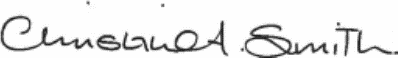 Christine A. Smith